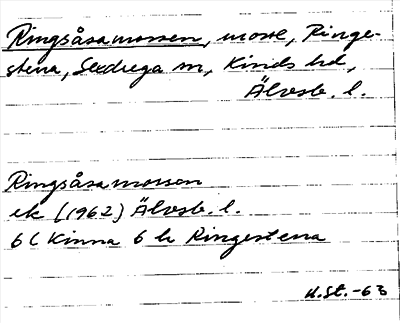 Ringsåsamossen, mosse, Ringe-
stena, Sexdrega sn, Kinds hd,
Älvsb. l.
Ringsåsamossen
ek (1962) Älvsb. l.
6 C Kinna 6 h Ringestena
U.St.-63